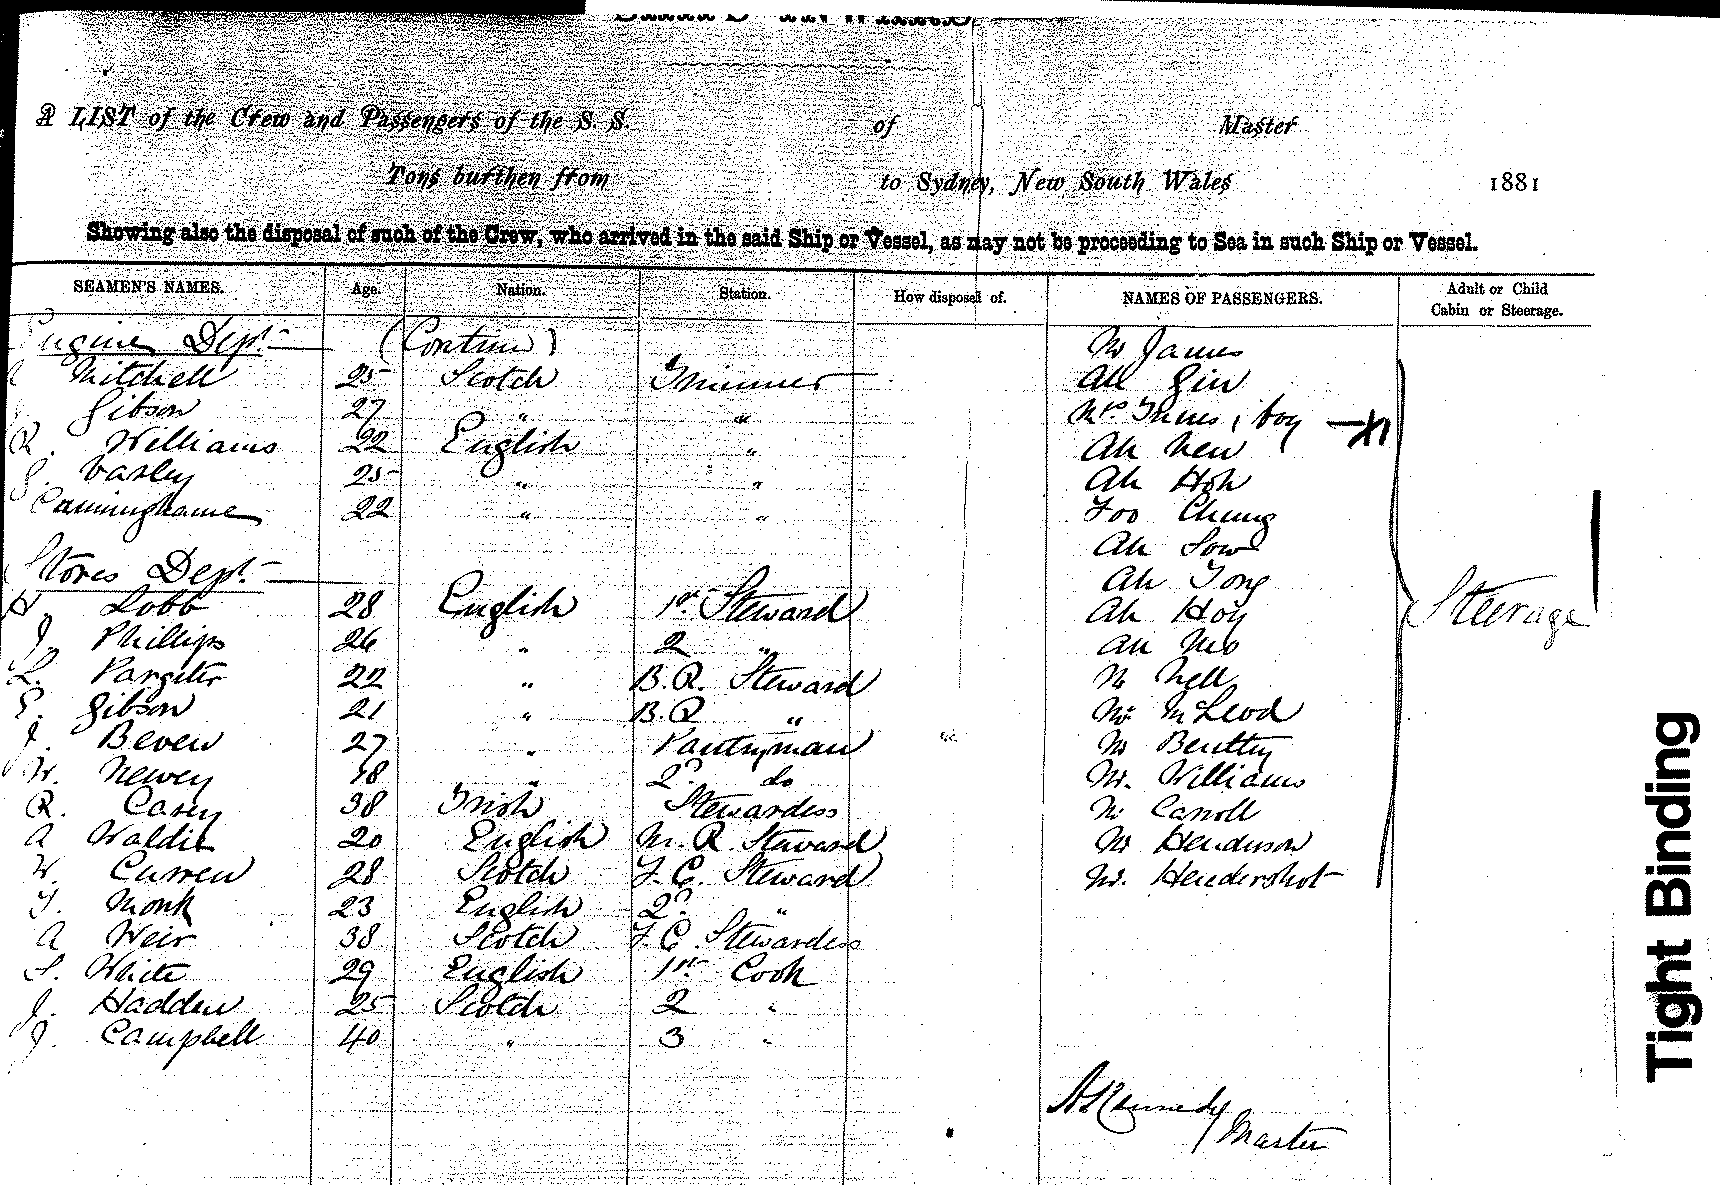 A LIST of the Crew and Passengers of the S. S. of Master
Tons burthen from to Sydney, New South Wales 1881
Showing also the disposal of such of the Crew, who arrived in the said Ship or Vessel, as may not be proceeding to Sea in such Ship or Vessel.
SEAMEN'S NAMES. Age. Nation. Station. How disposal of. NAMES OF PASSENGERS. Adult or Child Cabin or Steerage.
Engine Dept. (Contin) Mr James
Mitchell 25 Scotch Trimmer Ah Gin
Gibson 27 " " Mrs Innes 1 boy
R. Williams 22 English " Ah New
J. Varley 25 " " Ah Hoh
Cunninghame 22 " " Foo Chung
Ah Sow
Stores Dept. Ah Tong
H. Lobb 28 English 1st Steward Ah Hoy Steerage
J. Phillips 26 " 2 " Ah
L. Pargiter 22 " B. R. Steward Mr Nell
E. Gibson 21 " B. R " Mr McLeod
J. Beven 27 " Pantryman Mr Bentley
W. Newey 18 " 2d do Mr. Williams
R. Casey 38 Irish Stewardess Mr Carroll
A Waldie 20 English M. R. Steward Mr Henderson
W. Curren 28 Scotch F. C. Steward Mr. Hendershot
T. Monk 23 English 2d "
A Weir 38 Scotch F. C Stewardess
S. White 29 English 1st Cook
J. Hadden 25 Scotch 2 "
J. Campbell 40 " 3 "
A Kennedy
Master
Tight Binding